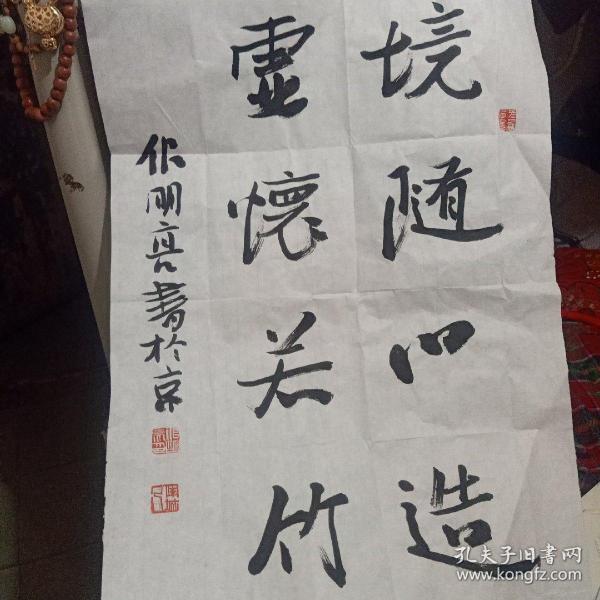 境随心造
虚懷若竹
明亮書於京
孔夫子旧书网
www.kongfz.com